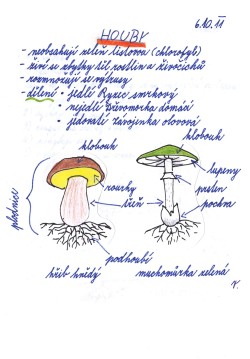 HOUBY
6.10.11
- neobsahují zeleň listovou (chlorofyl)
- živí se zbytky těl rostlin a živočichů
- rozmnožují se výtrusy
- dělení • jedlé Ryzec smrkový
• nejedlé Dřevomorka domácí
• jedovaté Závojenka olovová
klobouk
klobouk
plodnice
lupeny
rourky
prsten
třeň
pochva
podhoubí
hřib hnědý
muchomůrka zelená